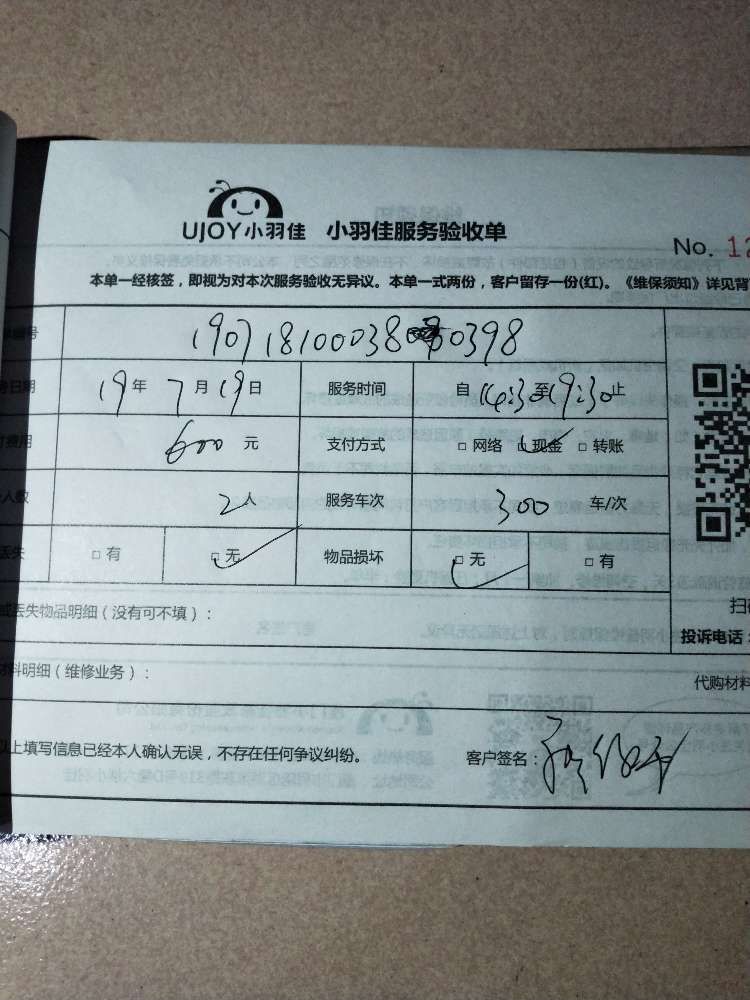 UJOY小羽佳 小羽佳服务验收单
No. 12
本单一经核签，即视为对本次服务验收无异议。本单一式两份，客户留存一份(红)。《维保须知》详见背
编号 190718100038 0398
日期 19年 7月19日 服务时间 自 16:30 至 19:30 止
费用 600 元 支付方式 □ 网络 □ 现金 □ 转账
人数 2人 服务车次 300 车/次
丢失 □ 有 □ 无 物品损坏 □ 无 □ 有
或丢失物品明细（没有可不填）：
扫
投诉电话：
材料明细（维修业务）：
代购材料
以上填写信息已经本人确认无误，不存在任何争议纠纷。 客户签名：